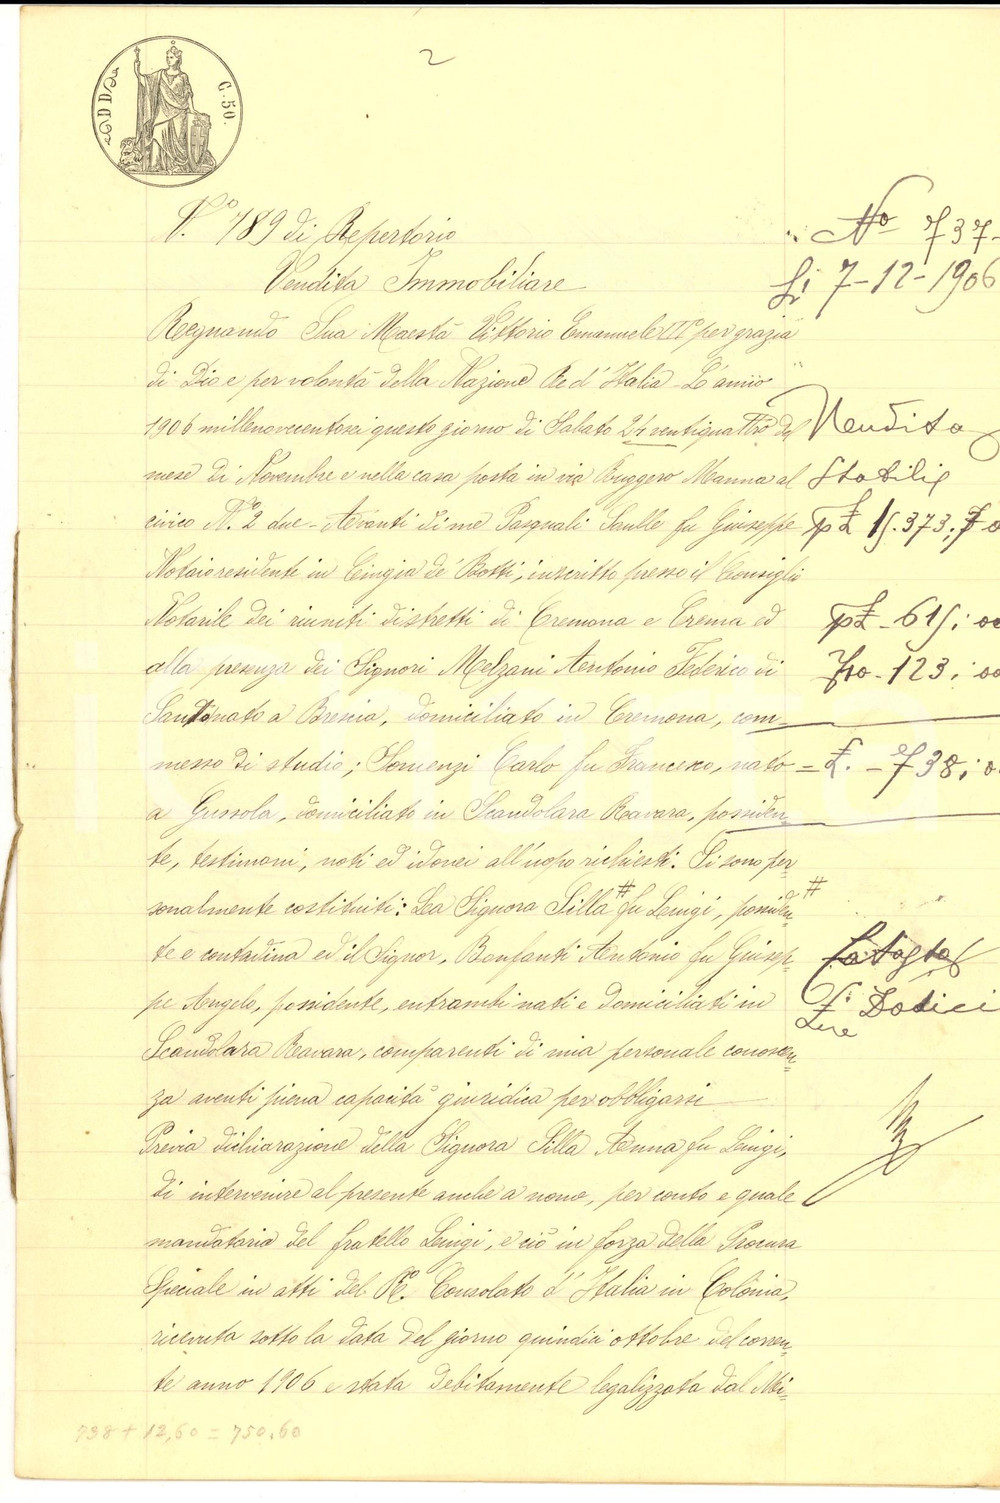 2
C. 50.
N.° 789 di Repertorio
Vendita Immobiliare
Regnando Sua Maestà Vittorio Emanuele III° per grazia
di Dio e per volontà della Nazione Re d'Italia - L'anno
1906 millenovecentosei questo giorno di Sabato 24 ventiquattro del
mese di Novembre e nella casa posta in via Ruggero Manna al
civico N.° 2 due - Avanti di me Pasquali Saulle fu Giuseppe
Notaio residente in Cingia de' Botti, inscritto presso il Consiglio
Notarile dei riuniti distretti di Cremona e Crema ed
alla presenza dei Signori Melzani Antonio Federico di
Santo nato a Brescia, domiciliato in Cremona, com=
messo di studio; Somenzi Carlo fu Francesco, nato
a Gussola, domiciliato in Scandolara Ravara, possiden=
te, testimoni, noti ed idonei all'uopo richiesti. Si sono per=
sonalmente costituiti: La Signora Silla # fu Luigi, possiden=
te e contadina ed il Signor, Bonfanti Antonio fu Giusep=
pe Angelo, possidente, entrambi nati e domiciliati in
Scandolara Ravara, comparenti di mia personale conoscen=
za aventi piena capacità giuridica per obbligarsi
Previa dichiarazione della Signora Silla Anna fu Luigi,
di intervenire al presente anche a nome, per conto e quale
mandataria del fratello Luigi, e ciò in forza della Procura
Speciale in atti del R.° Consolato d'Italia in Colonia,
ricevuta sotto la data del giorno quindici ottobre del corren=
te anno 1906 e stata debitamente legalizzata dal Mi=
N° 737-
Li 7-12-1906
Vendita
Stabili
615; 00
123; 00
= £. - 738; 0
#
Catasto
Dodici
Lire
738 + 12,60 = 750,60